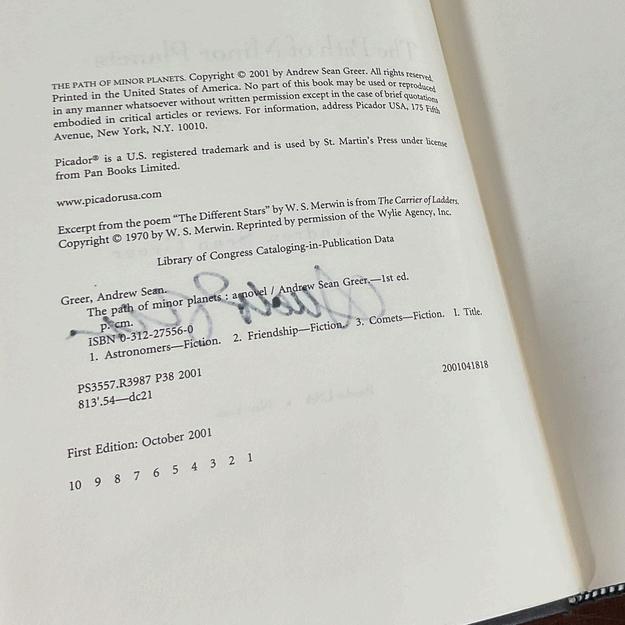 THE PATH OF MINOR PLANETS. Copyright © 2001 by Andrew Sean Greer. All rights reserved.
Printed in the United States of America. No part of this book may be used or reproduced
in any manner whatsoever without written permission except in the case of brief quotations
embodied in critical articles or reviews. For information, address Picador USA, 175 Fifth
Avenue, New York, N.Y. 10010.
Picador® is a U.S. registered trademark and is used by St. Martin's Press under license
from Pan Books Limited.
www.picadorusa.com
Excerpt from the poem “The Different Stars” by W. S. Merwin is from The Carrier of Ladders.
Copyright © 1970 by W. S. Merwin. Reprinted by permission of the Wylie Agency, Inc.
Library of Congress Cataloging-in-Publication Data
Greer, Andrew Sean.
The path of minor planets : a novel / Andrew Sean Greer.—1st ed.
p. cm.
ISBN 0-312-27556-0
1. Astronomers—Fiction. 2. Friendship—Fiction. 3. Comets—Fiction. I. Title.
PS3557.R3987 P38 2001
813'.54—dc21
2001041818
First Edition: October 2001
10 9 8 7 6 5 4 3 2 1